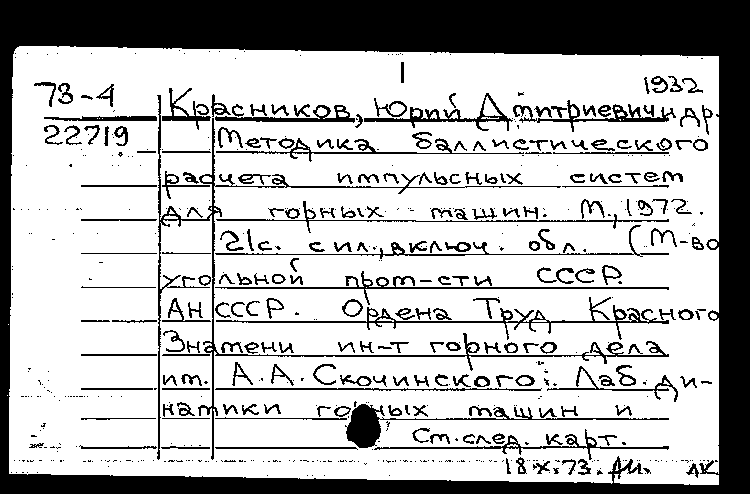 1932
73-4 Красников, Юрий Дмитриевич и др.
22719 Методика баллистического
расчета импульсных систем
для горных машин. М., 1972.
21с. с ил., включ. обл. (М-во
угольной пром-сти СССР.
АН СССР. Ордена Труд. Красного
Знамени ин-т горного дела
им. А.А. Скочинского. Лаб. ди-
намики горных машин и
См. след. карт.
18.X.73.